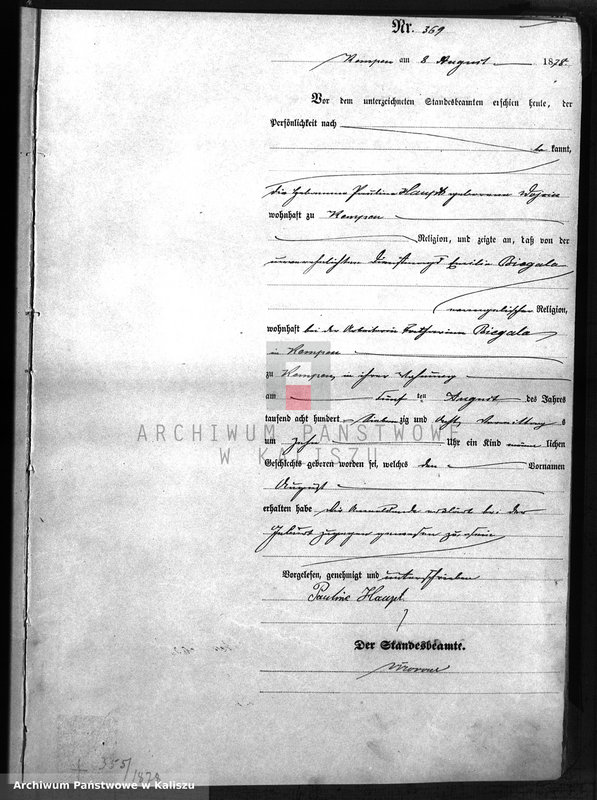 Nr. 369
Kempen am 8 August 1878
Vor dem unterzeichneten Standesbeamten erschien heute, der
Persönlichkeit nach
be kannt,
die Hebamme Pauline Haupt geborene
wohnhaft zu Kempen
Religion, und zeigte an, daß von der
unverehelichten Emilie Biegala
evangelischer Religion,
wohnhaft bei der Arbeiterin Biegala
in Kempen
zu Kempen, in ihrer Wohnung
am fünf ten August des Jahres
tausend acht hundert sieben zig und acht, Vormittag s
um zehn Uhr ein Kind männ lichen
Geschlechts geboren worden sei, welches den Vornamen
August
erhalten habe. Die erklärt bei der
Geburt zugegen gewesen zu sein
Vorgelesen, genehmigt und unterschrieben
Pauline Haupt
Der Standesbeamte.
ARCHIWUM PAŃSTWOWE
W KALISZU
† 355/1878
Archiwum Państwowe w Kaliszu